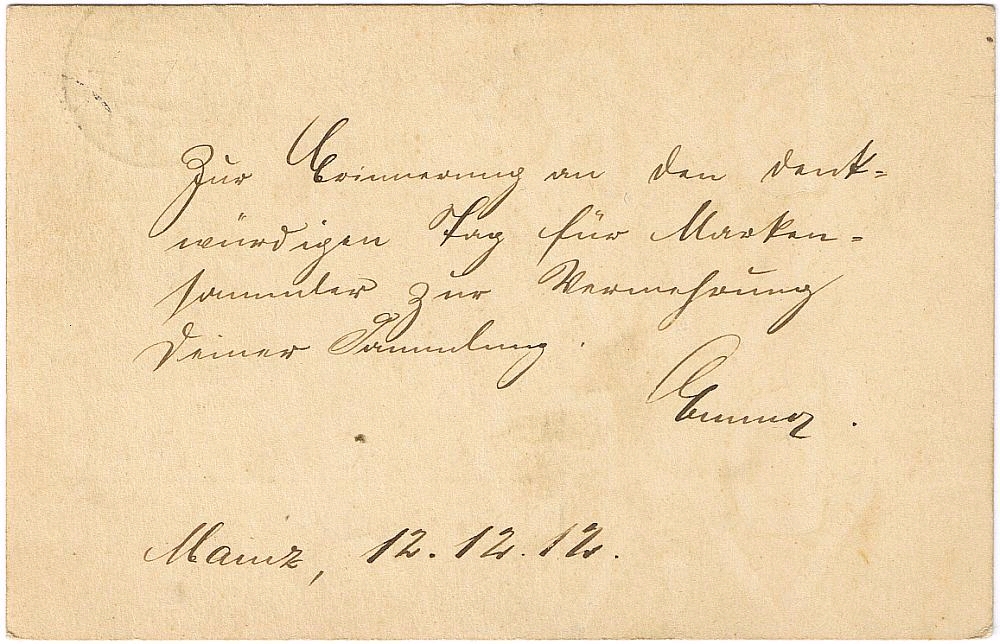 Zur Erinnerung an den denk-
würdigen Tag für Marken-
sammler zur Vermehrung
Deiner Sammlung.
Emma.
Mainz, 12.12.12.